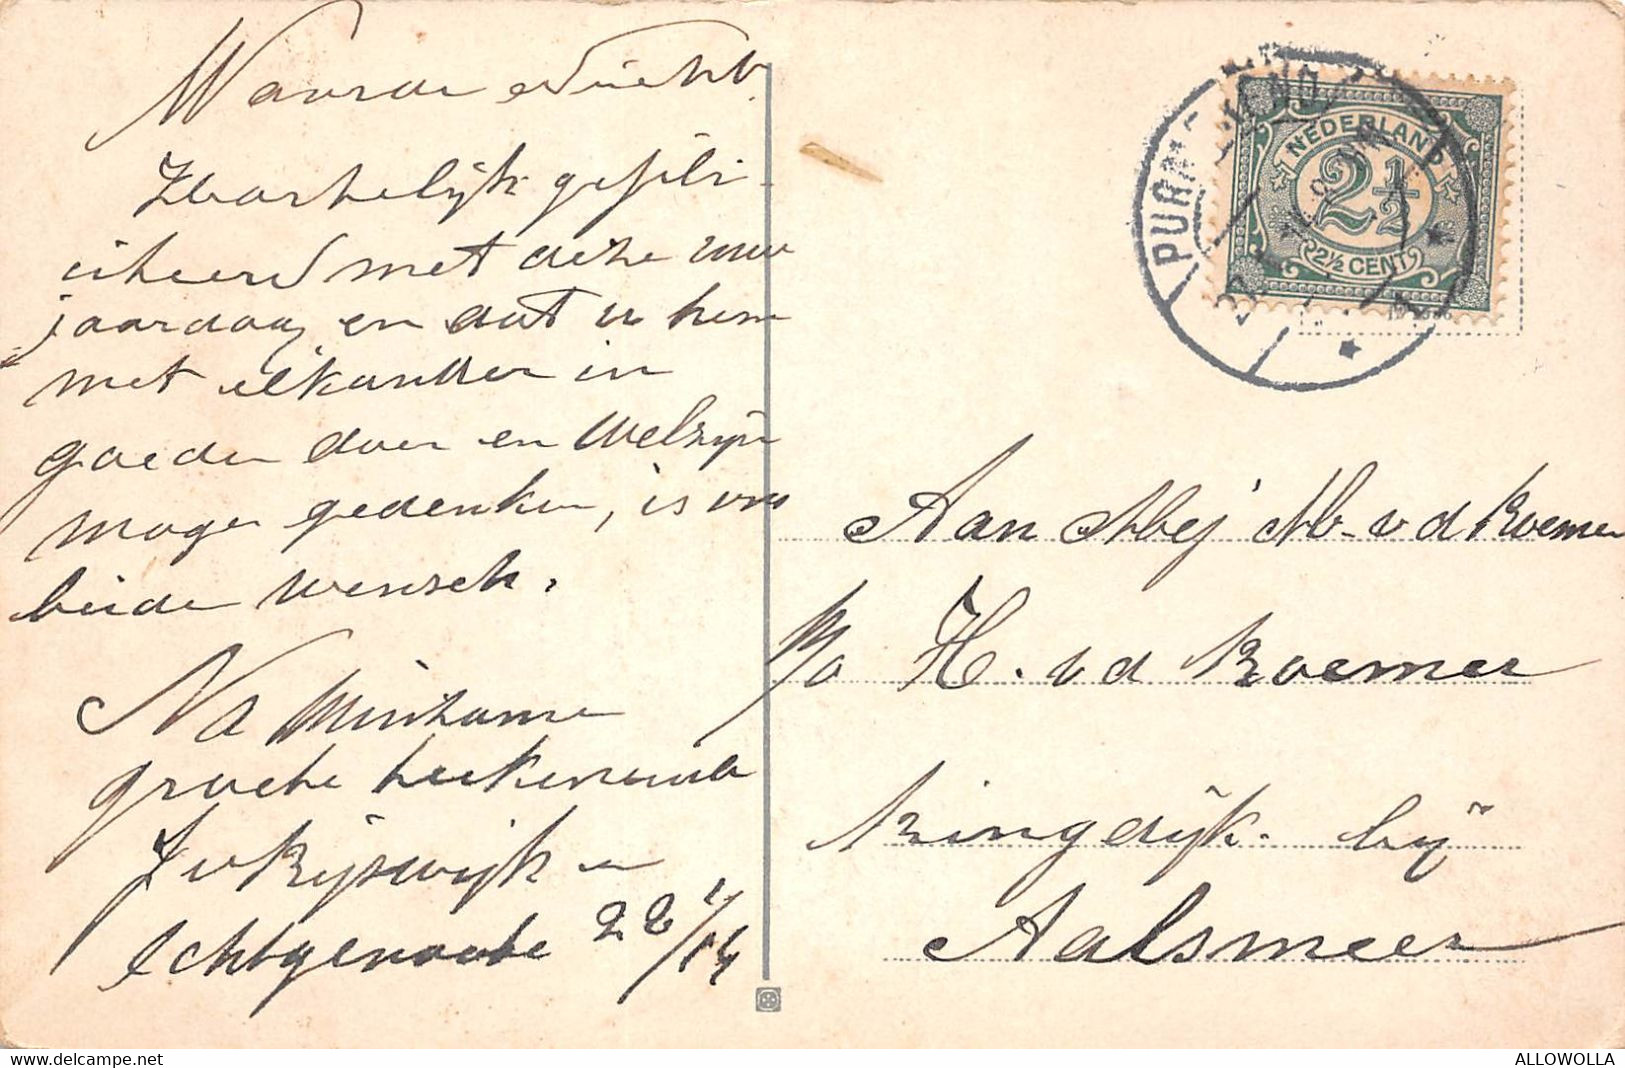 Waarde Nicht
Hartelijk gefili-
citeerd met deze uw
jaardag en dat u hem
met elkander in
goeden doen en Welzijn
moge gedenken, is ons
beide wensch.
Na Minzame
groete teekenende
J v Rijswijk en
Echtgenoote 22/1/14
NEDERLAND
2½
2½ CENT
PURMEREND
Aan Mej M. v d Kroemer
p/a H. v d Kroemer
Kringdijk. bij
Aalsmeer
ALLOWOLLA